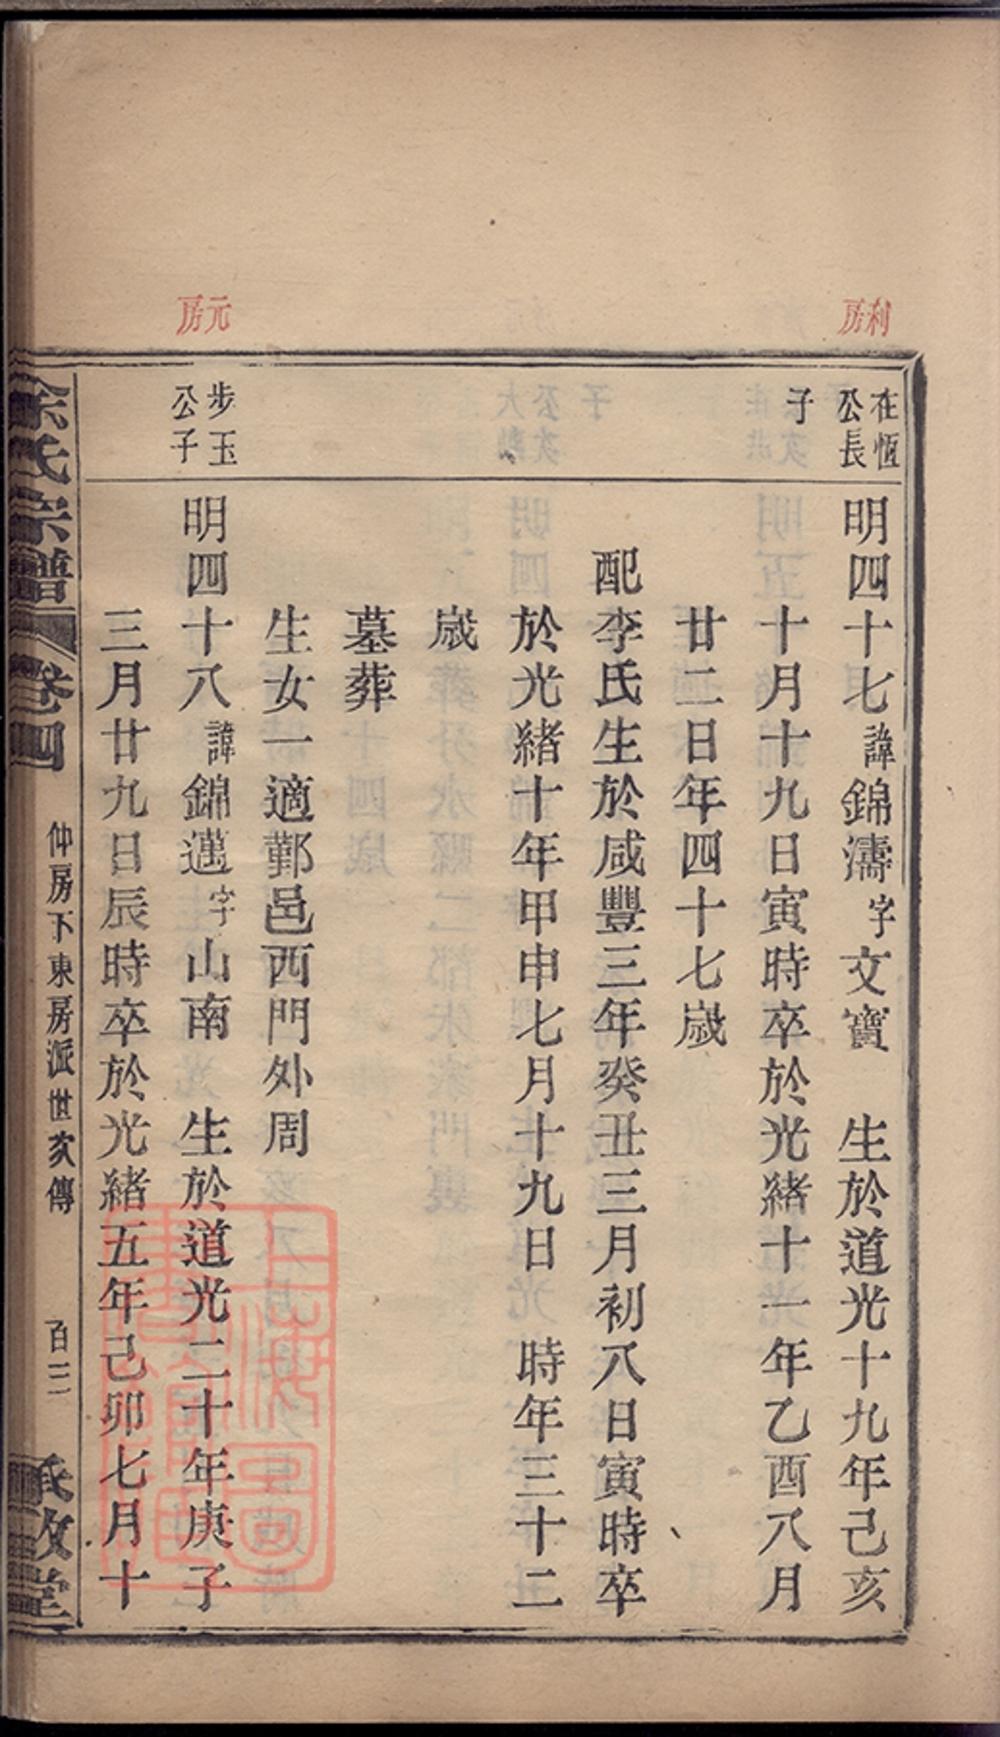 利房
在恆公長子
明四十七諱錦濤字文寶　生於道光十九年己亥
十月十九日寅時卒於光緒十一年乙酉八月
廿二日年四十七歲
配李氏生於咸豐三年癸丑三月初八日寅時卒
於光緒十年甲申七月十九日　時年三十二
歲
墓葬
生女一適鄞邑西門外周
元房
步玉公子
明四十八諱錦邁字山南　生於道光二十年庚子
三月廿九日辰時卒於光緒五年己卯七月十
氏宗譜　卷四　仲房下東房派世次傳　百三
上海圖書館藏